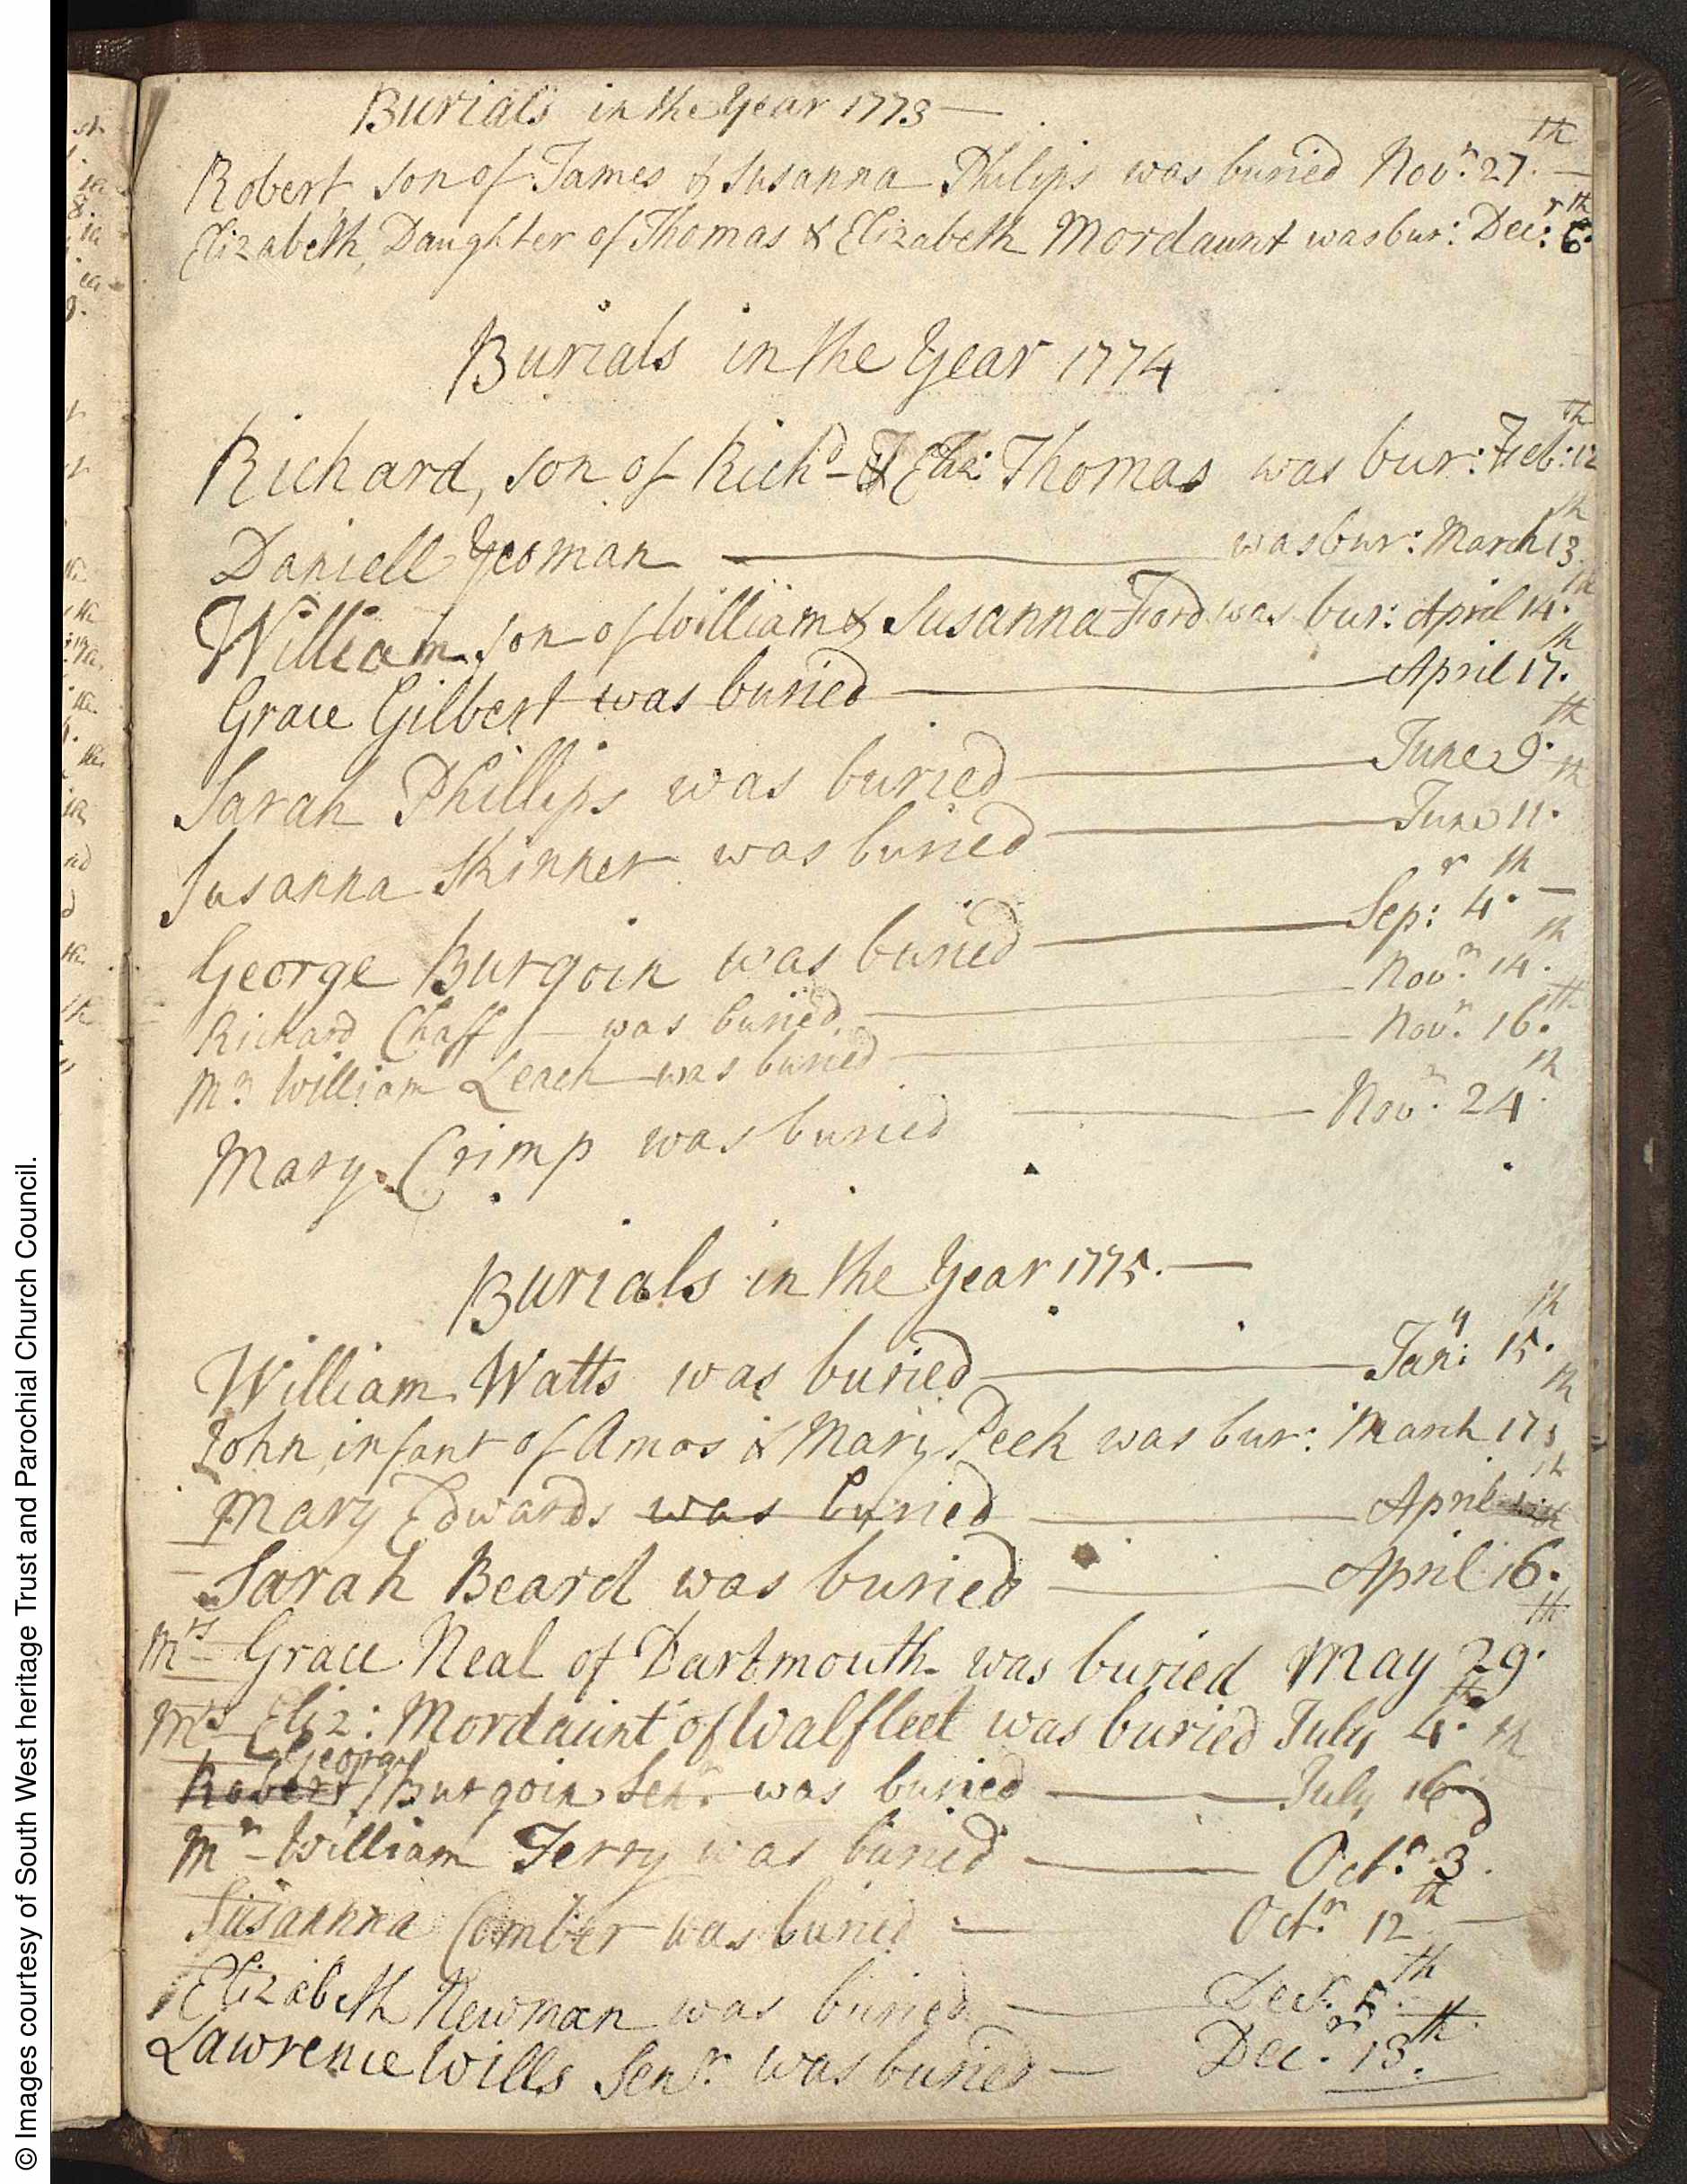 Burials in the Year 1773 —
Robert, son of James & Susanna Philips was buried Nov.r 27.th —
Elizabeth, Daughter of Thomas & Elizabeth Mordaunt was bur: Dec:r 6.th
Burials in the Year 1774
Richard, son of Rich.d & Eliz: Thomas was bur: Feb: 12th
Daniell Yeoman — was bur: March 13th
William son of William & Susanna Ford was bur: April 14.th
Grace Gilbert was buried — April 17.th
Sarah Phillips was buried — June 9.th
Susanna Skinner was buried — June 11.th
George Burgoin was buried — Sep:r 4.th —
Richard Chaff — was buried — Nov.r 14.th
Mr. William Leach was buried — Nov.r 16.th
Mary Crimp was buried — Nov.r 24.th
Burials in the Year 1775. —
William Watts was buried — Jan:y 15.th
John, infant of Amos & Mary Peek was bur: March 17th
Mary Edwards was buried — April
Sarah Beard was buried — April 16.th
Mrs Grace Neal of Dartmouth was buried May 29.th
Mrs Eliz: Mordaunt of Walfleet was buried July 4.th
Robert George Burgoin Sen.r was buried — July 16th
Mr William Terry was buried — Oct.r 3.d
Susannna Comber was buried — Oct.r 12th —
Elizabeth Newman was buried — Dec.r 5.th
Lawrence Wills Sen.r was buried — Dec.r 13.th
© Images courtesy of South West heritage Trust and Parochial Church Council.